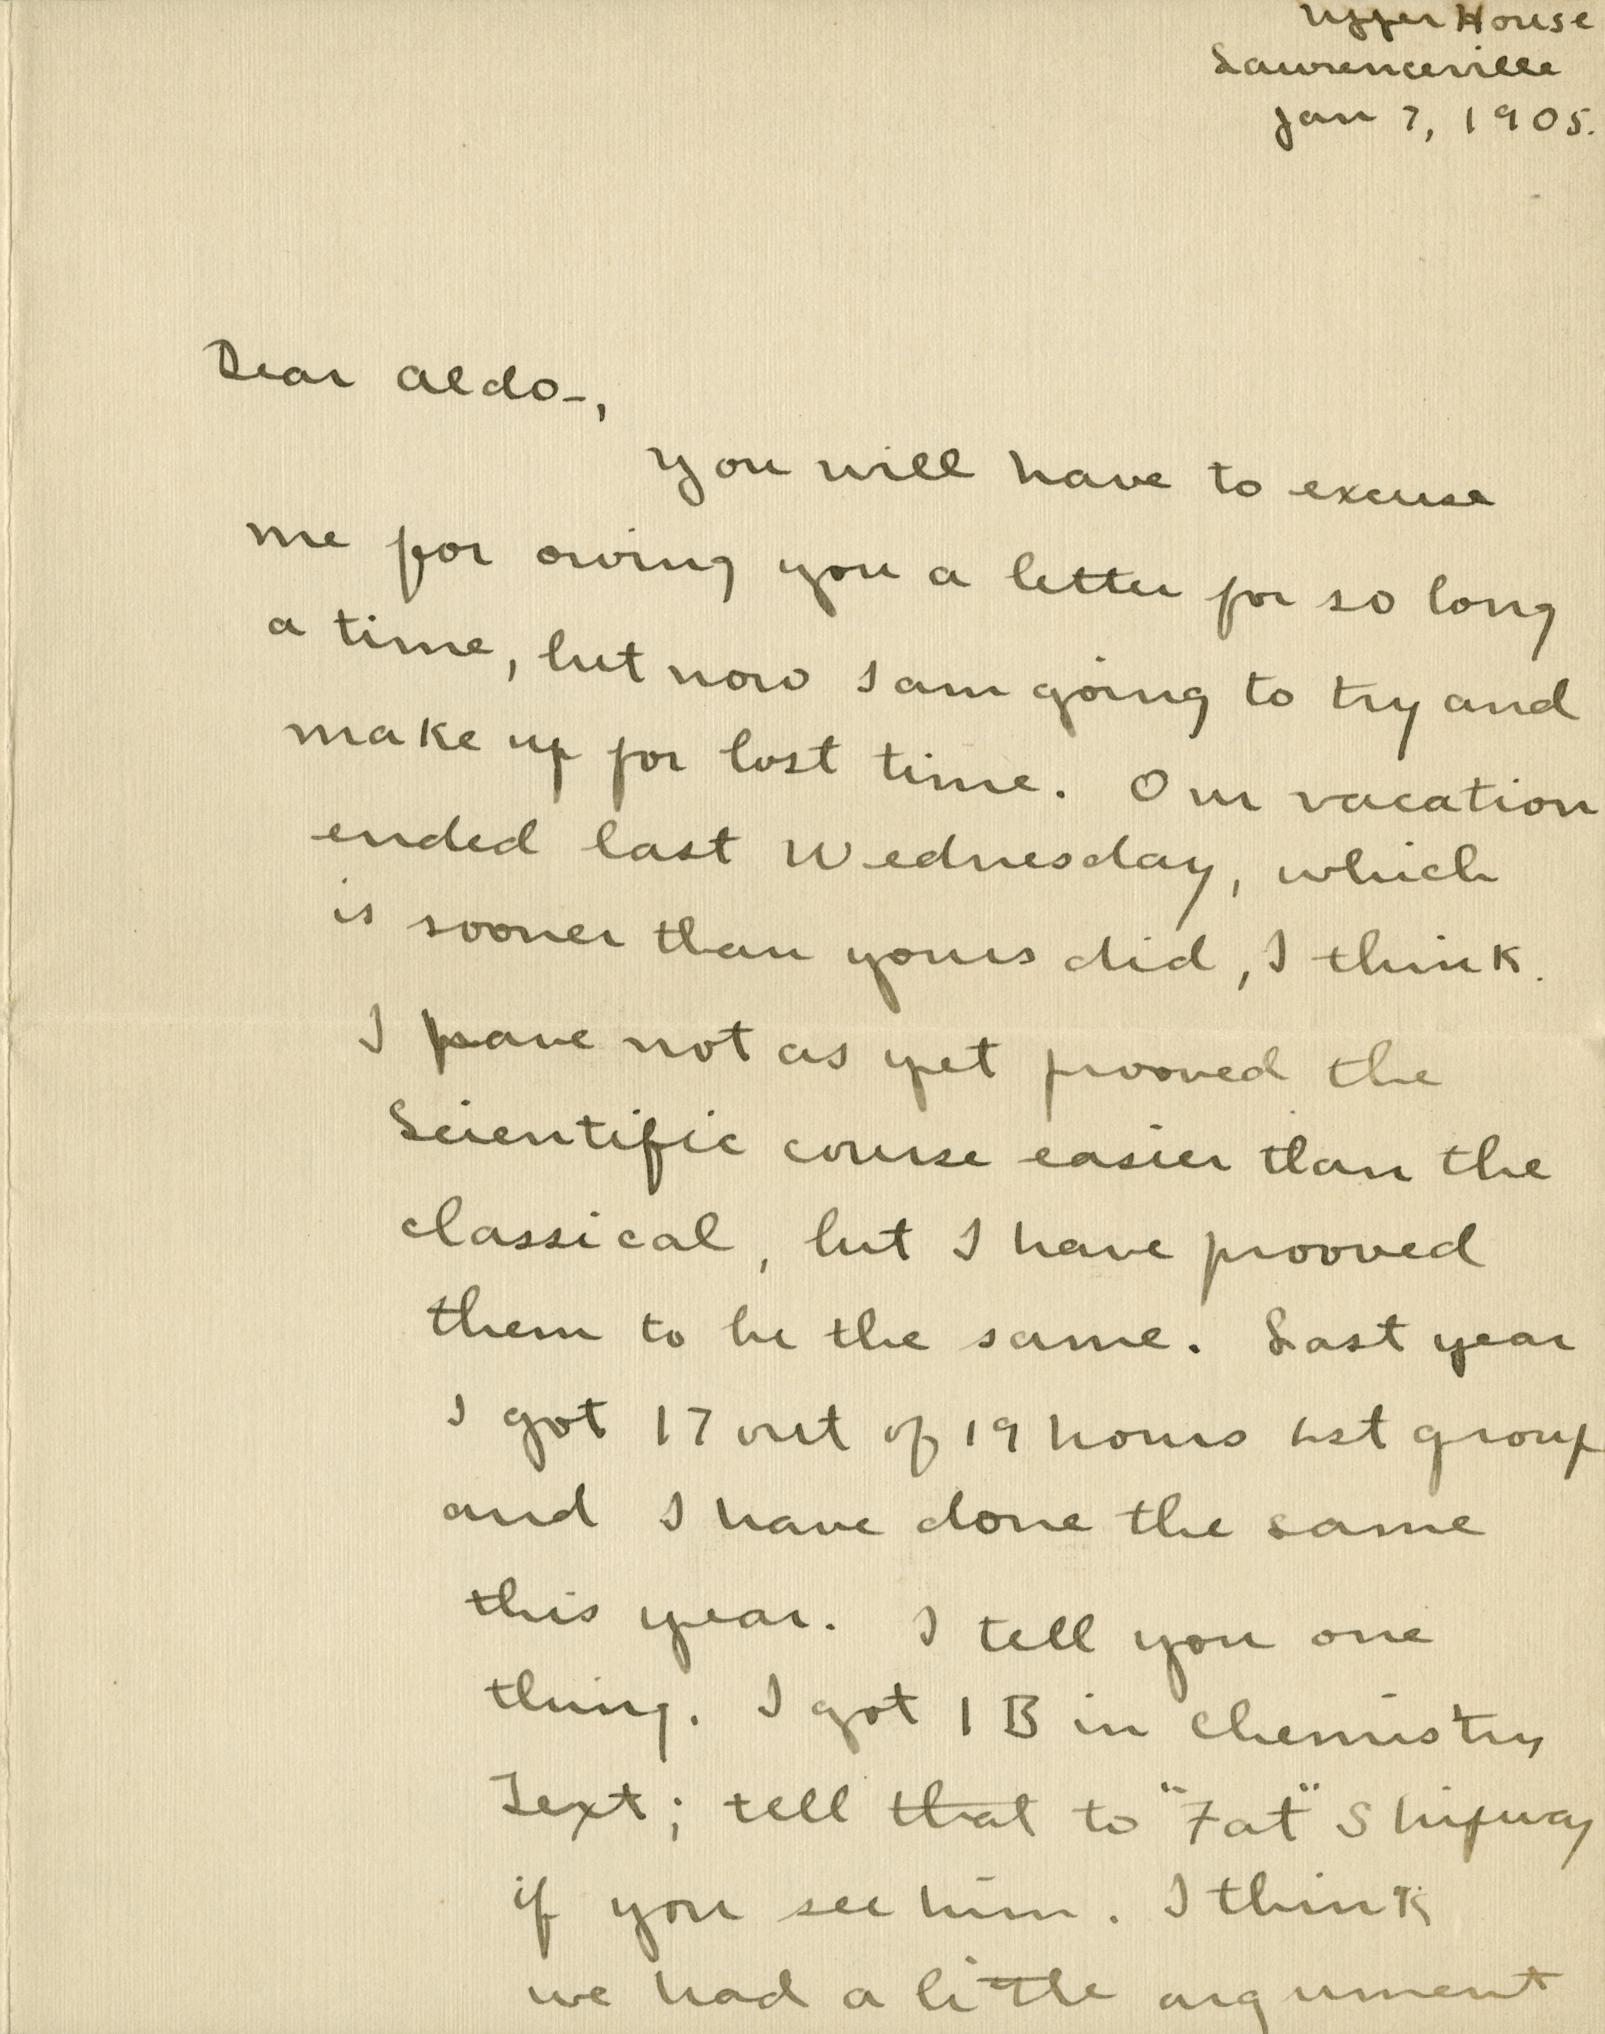 Upper House
Lawrenceville
Jan 7, 1905.
Dear Aldo-,
You will have to excuse
me for owing you a letter for so long
a time, but now I am going to try and
make up for lost time. Our vacation
ended last Wednesday, which
is sooner than yours did, I think.
I have not as yet prooved the
Scientific course easier than the
classical, but I have prooved
them to be the same. Last year
I got 17 out of 19 hours 1st group
and I have done the same
this year. I tell you one
thing. I got 1 B in Chemistry
Text; tell that to "Fat" Shipway
if you see him. I think
we had a little argument